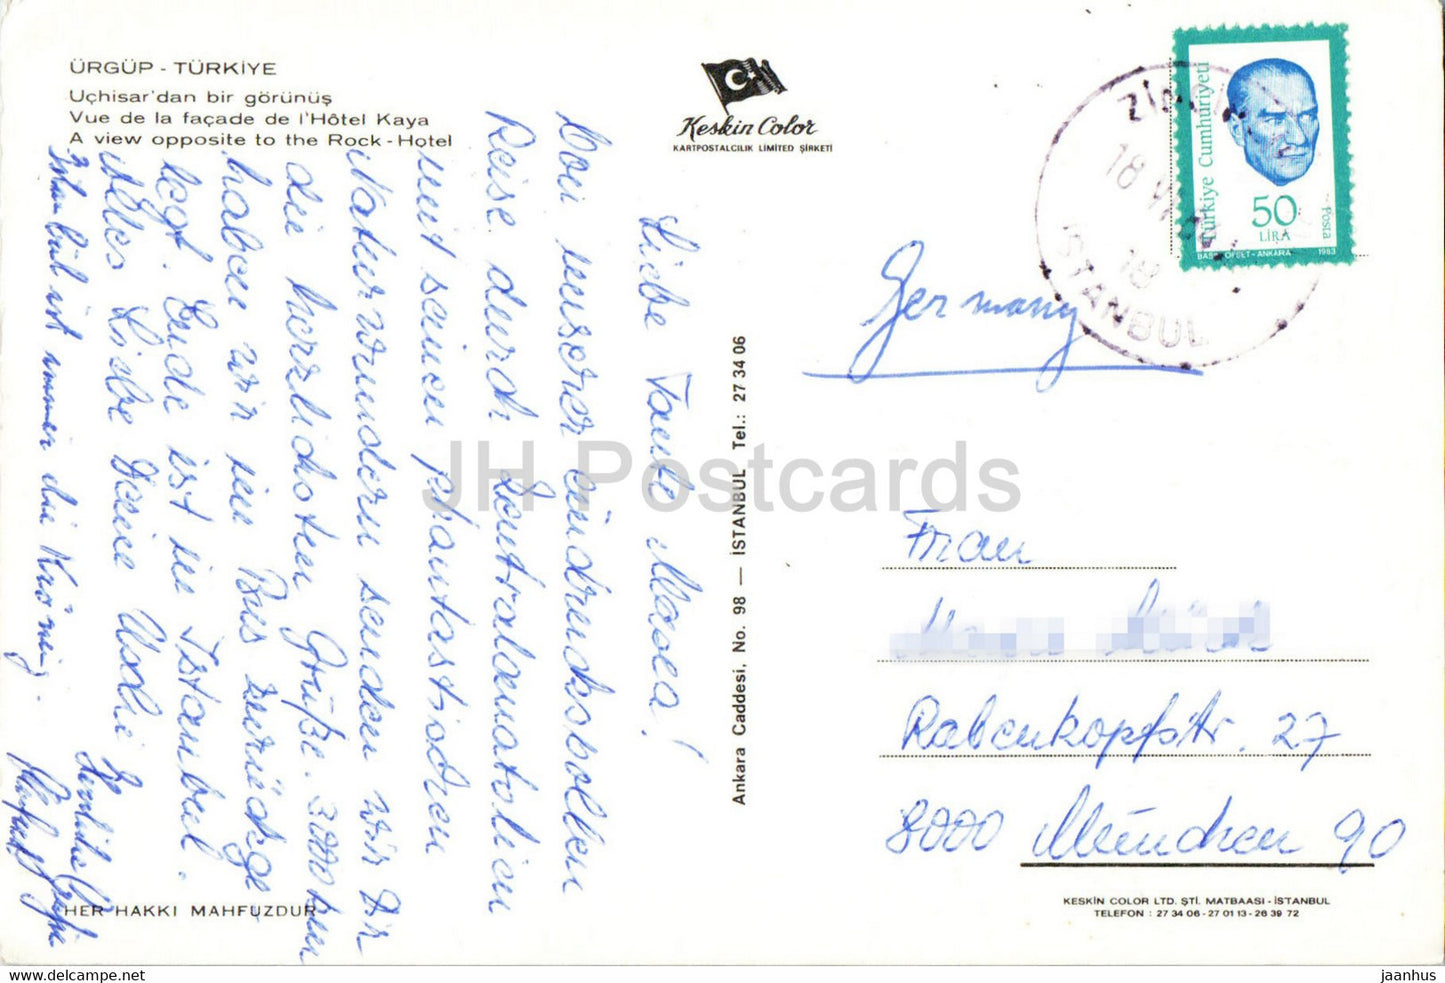 ÜRGÜP - TÜRKİYE
Uçhisar'dan bir görünüş
Vue de la façade de l'Hôtel Kaya
A view opposite to the Rock - Hotel
Keskin Color
KARTPOSTALCILIK LIMITED ŞİRKETİ
Liebe Tante
Von unserer eindrucksvollen
Reise durch Zentralanatolien
mit seinen phantastischen
Naturwundern senden wir Dir
die herzlichsten Grüße. 3000 km
haben wir im Bus zurückge
legt. Ende ist in Istanbul.
Alles Liebe Deine Uschi
Istanbul ist immer die Krönung.
Herzliche Grüße
HER HAKKI MAHFUZDUR
Ankara Caddesi, No. 98 — İSTANBUL Tel.: 27 34 06
Türkiye Cumhuriyeti
50
LİRA
Posta
ANKARA
1983
18
18
İSTANBUL
Germany
Frau
Rabenkopfstr. 27
8000 München 90
KESKİN COLOR LTD. ŞTİ. MATBAASI - İSTANBUL
TELEFON : 27 34 06 - 27 01 13 - 26 39 72
JH Postcards
ilovestamp.com
jaanhus